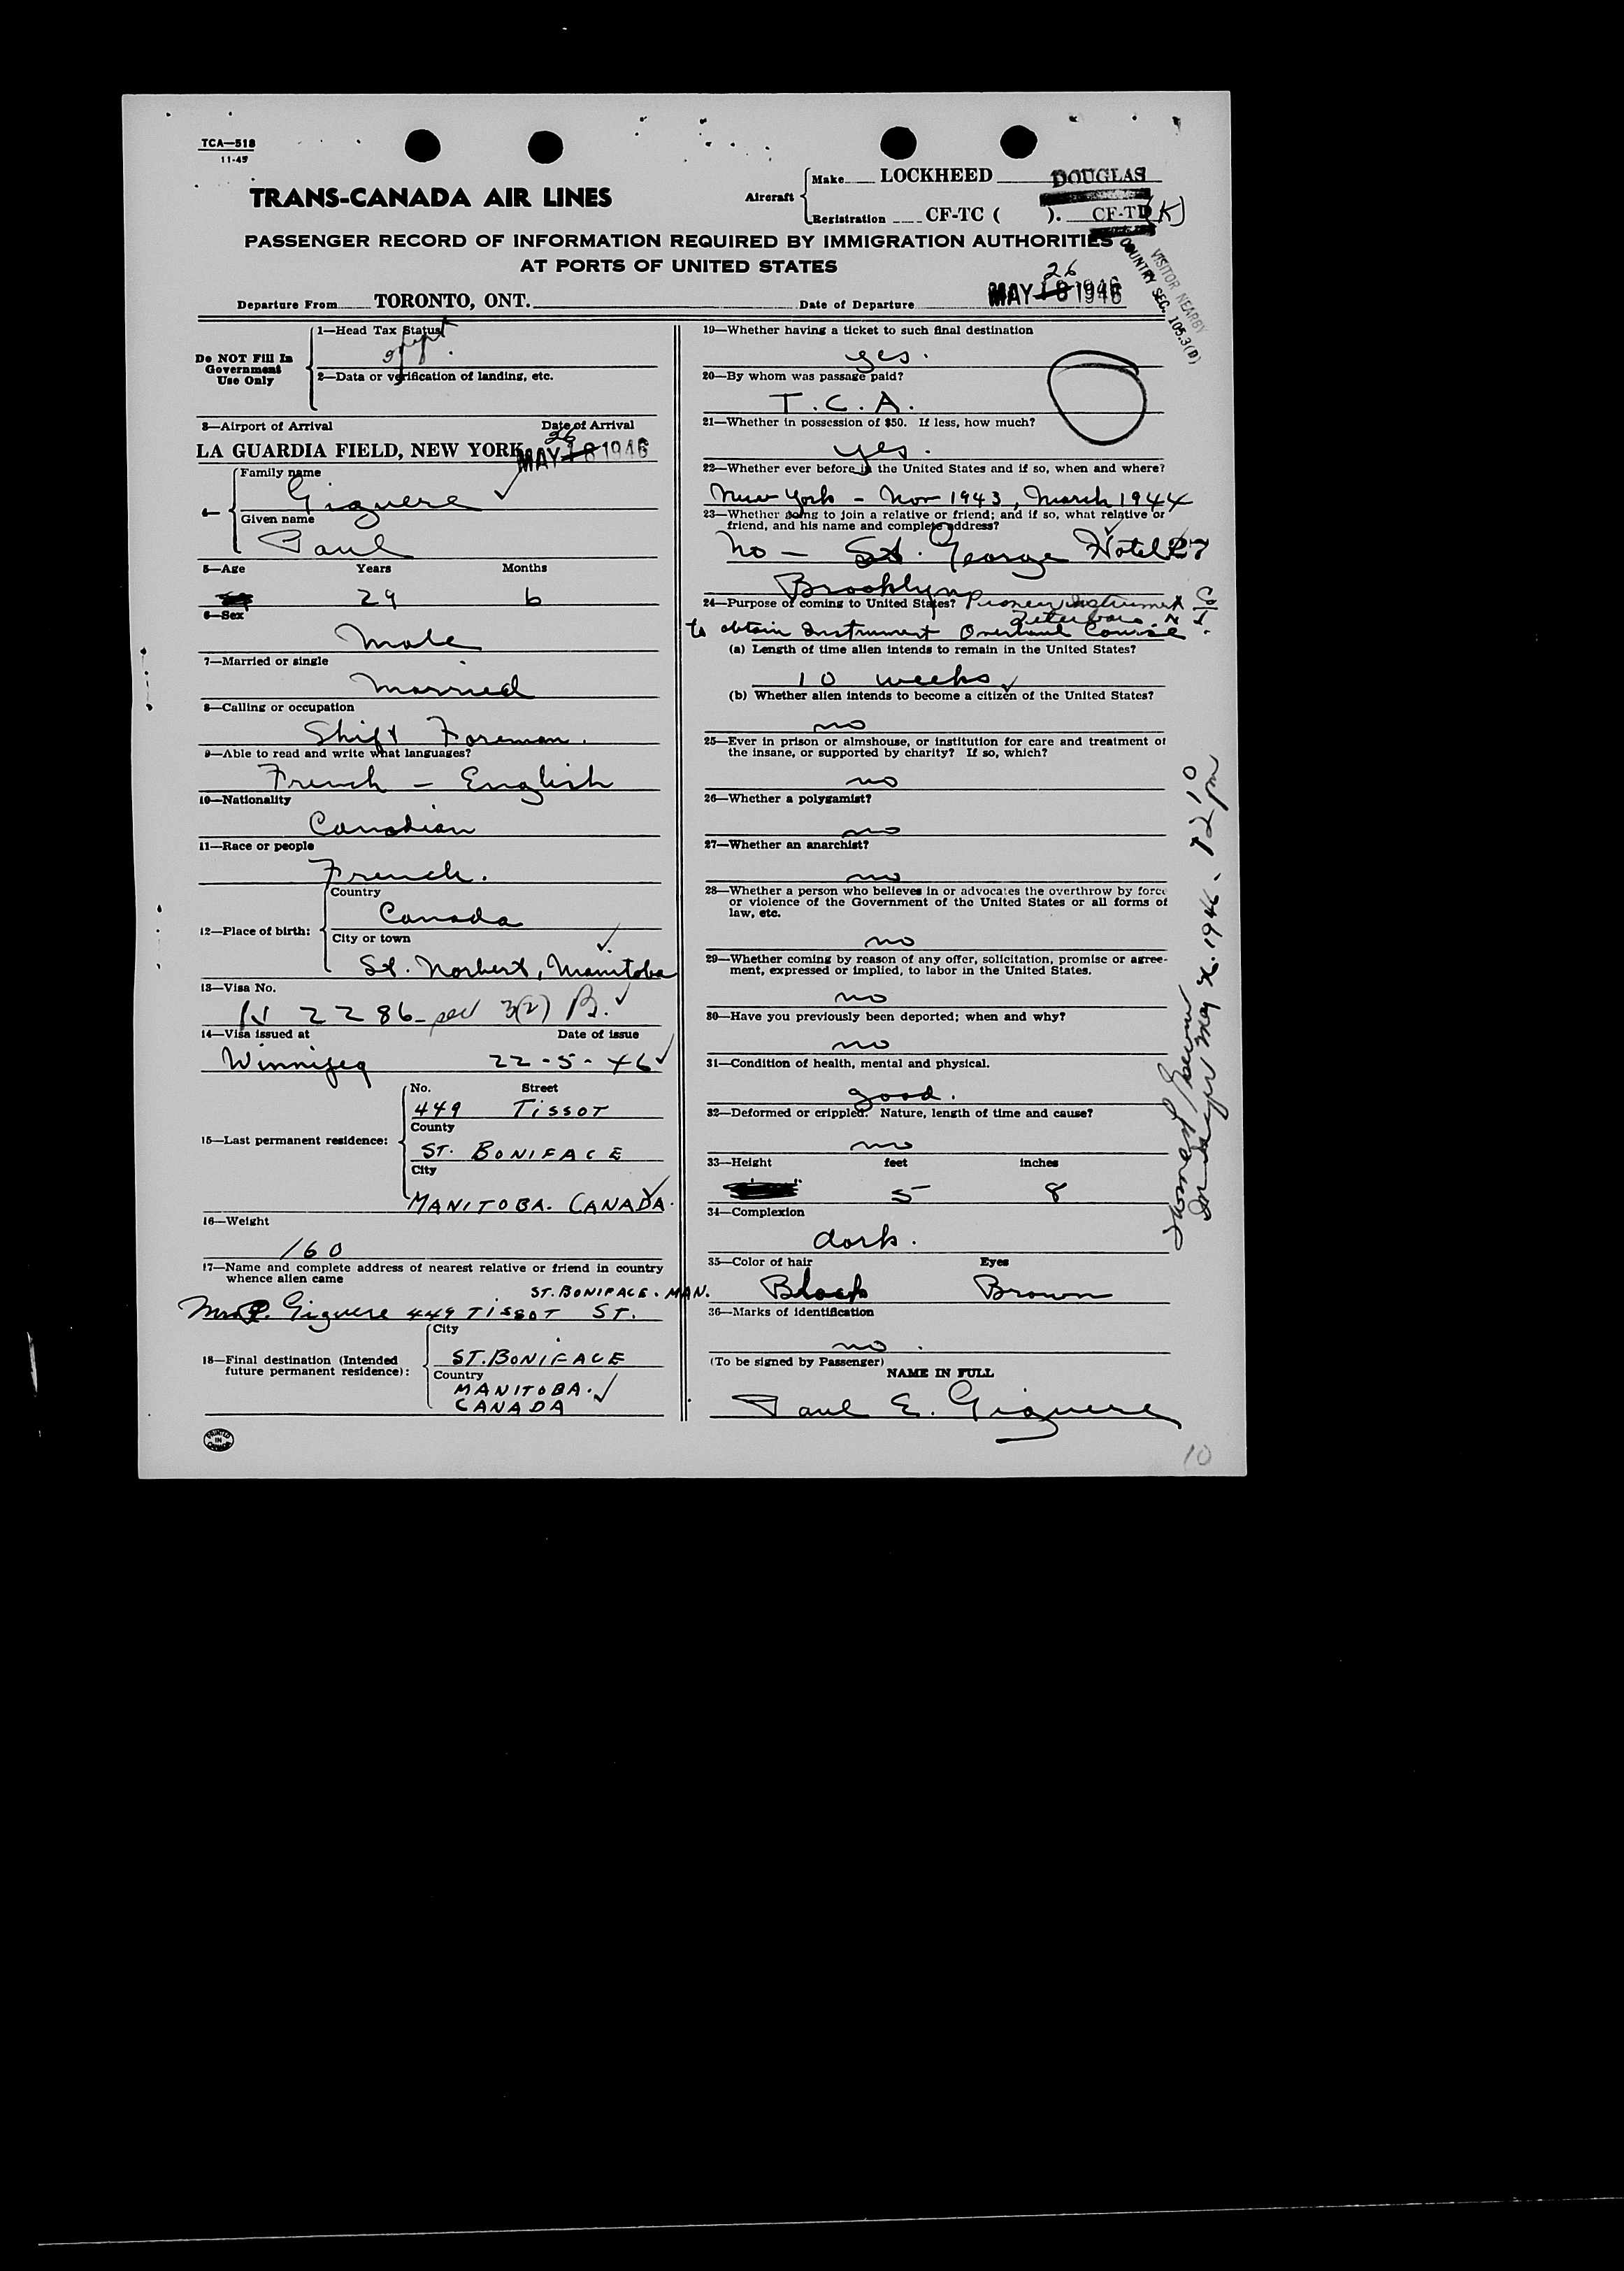 TCA—518
11-45
TRANS-CANADA AIR LINES
Aircraft
Make LOCKHEED DOUGLAS
Registration CF-TC ( ). CF-TD (K)
PASSENGER RECORD OF INFORMATION REQUIRED BY IMMIGRATION AUTHORITIES
AT PORTS OF UNITED STATES
VISITOR NEARBY
COUNTRY SEC. 105.3(D)
26
Departure From TORONTO, ONT. Date of Departure MAY 18 1946
Do NOT Fill In
Government
Use Only
1—Head Tax Status
2—Data or verification of landing, etc.
3—Airport of Arrival Date of Arrival
26
LA GUARDIA FIELD, NEW YORK MAY 18 1946
4—
Family name
Giguere
Given name
Paul
5—Age Years Months
29 6
6—Sex
Male
7—Married or single
Married
8—Calling or occupation
Shift Foreman.
9—Able to read and write what languages?
French — English
10—Nationality
Canadian
11—Race or people
French.
12—Place of birth:
Country
Canada
City or town
St. Norbert, Manitoba
13—Visa No.
2286 3(2)
14—Visa issued at Date of issue
Winnipeg 22-5-46
15—Last permanent residence:
No. Street
449 TISSOT
County
ST. BONIFACE
City
MANITOBA. CANADA.
16—Weight
160
17—Name and complete address of nearest relative or friend in country
whence alien came
ST. BONIFACE. MAN.
Mrs P. Giguere 449 TISSOT ST.
18—Final destination (Intended
future permanent residence):
City
ST. BONIFACE
Country
MANITOBA.
CANADA
PRINTED
IN
CANADA
19—Whether having a ticket to such final destination
yes.
20—By whom was passage paid?
T.C.A.
21—Whether in possession of $50. If less, how much?
yes.
22—Whether ever before in the United States and if so, when and where?
New York — Nov 1943, March 1944
23—Whether going to join a relative or friend; and if so, what relative or
friend, and his name and complete address?
No — St. George Hotel 27
Brooklyn
24—Purpose of coming to United States? Pioneer Instrument Co
Teterboro. N.J.
to obtain Instrument Overhaul Course
(a) Length of time alien intends to remain in the United States?
10 weeks
(b) Whether alien intends to become a citizen of the United States?
no
25—Ever in prison or almshouse, or institution for care and treatment of
the insane, or supported by charity? If so, which?
no
26—Whether a polygamist?
no
27—Whether an anarchist?
no
28—Whether a person who believes in or advocates the overthrow by force
or violence of the Government of the United States or all forms of
law, etc.
no
29—Whether coming by reason of any offer, solicitation, promise or agree-
ment, expressed or implied, to labor in the United States.
no
30—Have you previously been deported; when and why?
no
31—Condition of health, mental and physical.
good.
32—Deformed or crippled. Nature, length of time and cause?
no
33—Height feet inches
5 8
34—Complexion
dark.
35—Color of hair Eyes
Black Brown
36—Marks of identification
no.
(To be signed by Passenger)
NAME IN FULL
Paul E. Giguere
10
May 26. 1946. 1210 pm